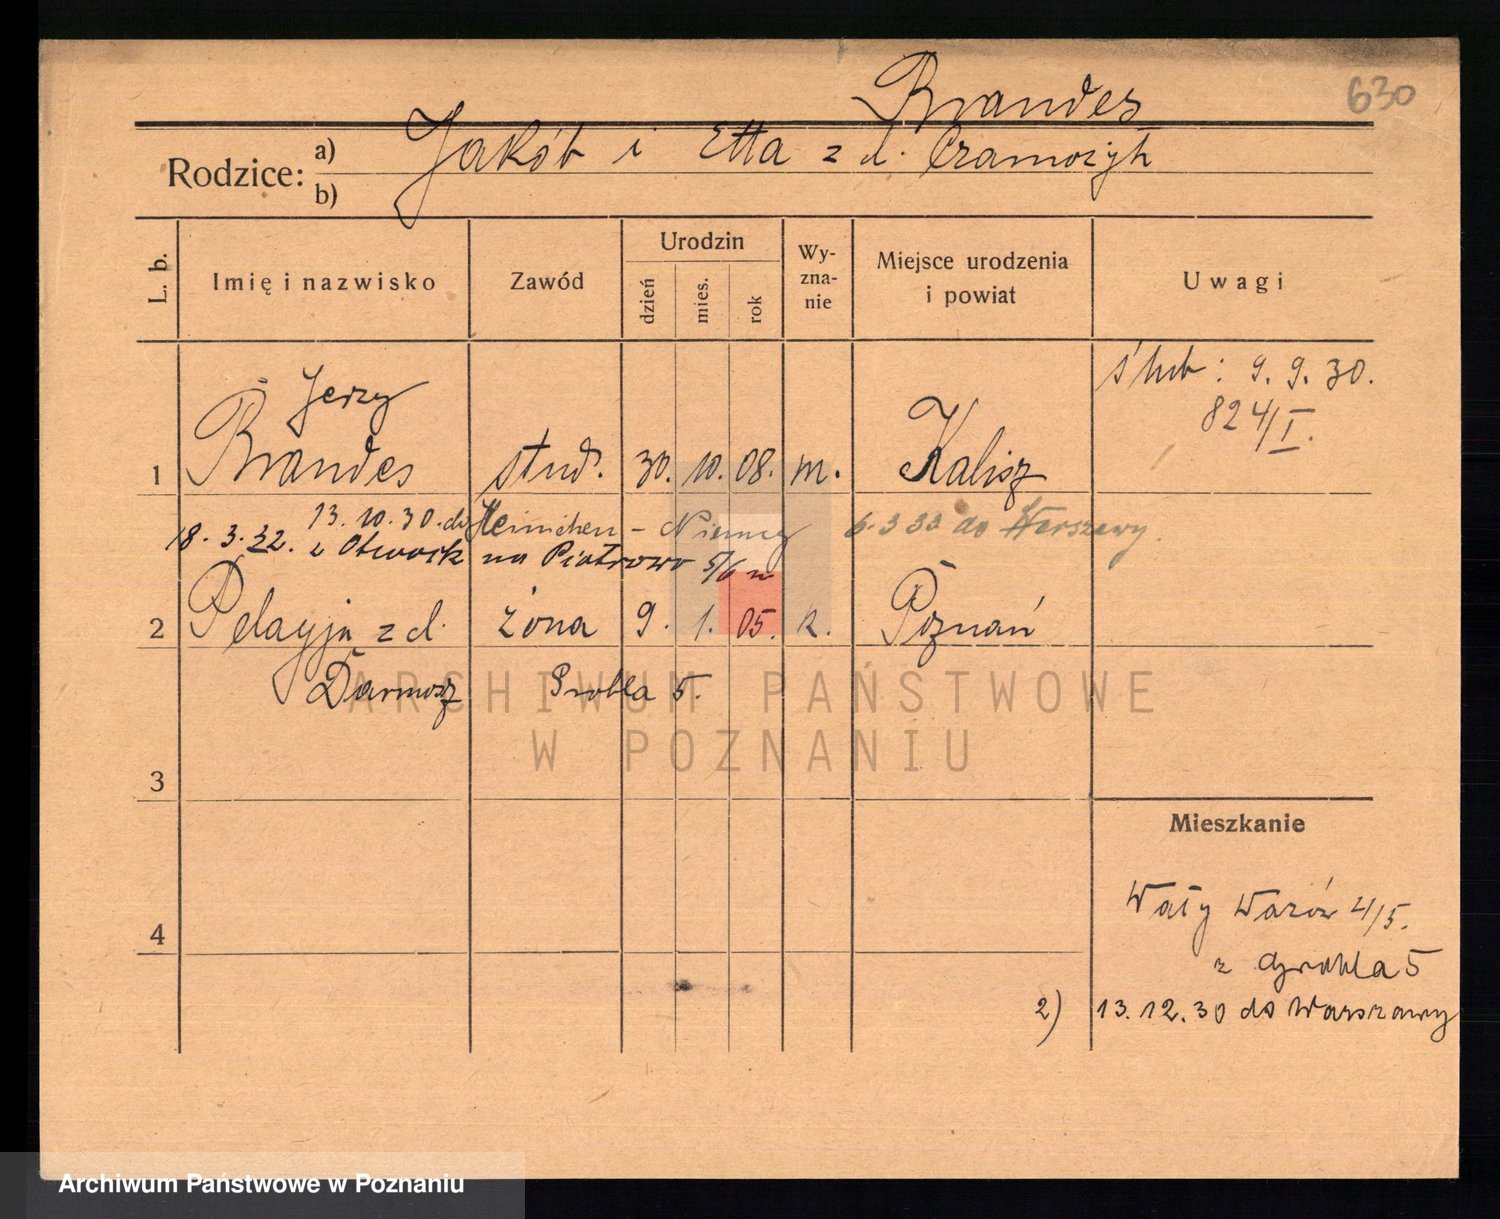 630
Brandes
Rodzice: a) Jakób i Etta z d. Czamożyh
b)
L. b. Imię i nazwisko Zawód Urodzin dzień mies. rok Wy-zna-nie Miejsce urodzenia i powiat Uwagi
ślub: 9. 9. 30.
824/I.
Jerzy
1 Brandes stud. 30. 10. 08. m. Kalisz
13. 10. 30. do - Niemcy 6. 3 33 do Warszawy.
18. 3. 32. z Otwock na Piotrowo 5/6 n
2 Pelagja z d. żona 9. 1. 05. k. Poznań
Darmosz Grobla 5.
ARCHIWUM PAŃSTWOWE
W POZNANIU
3
Mieszkanie
4
Wały Wazów 4/5.
z Grobla 5
2) 13. 12. 30 do Warszawy
Archiwum Państwowe w Poznaniu